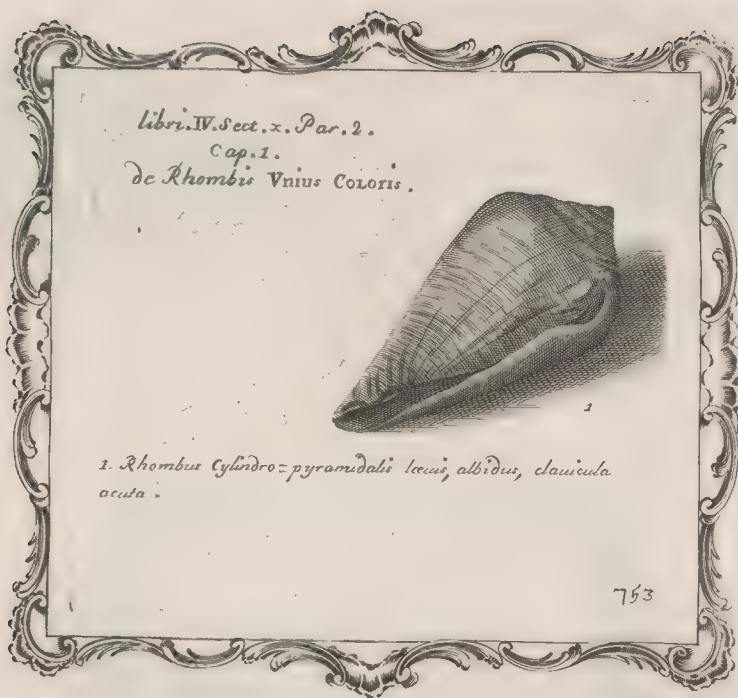 libri.IV.Sect.x.Par.2.
Cap.1.
de Rhombis Vnius Coloris.
1
1. Rhombus Cylindro=pyramidalis lævis, albidus, clauicula
acuta.
753